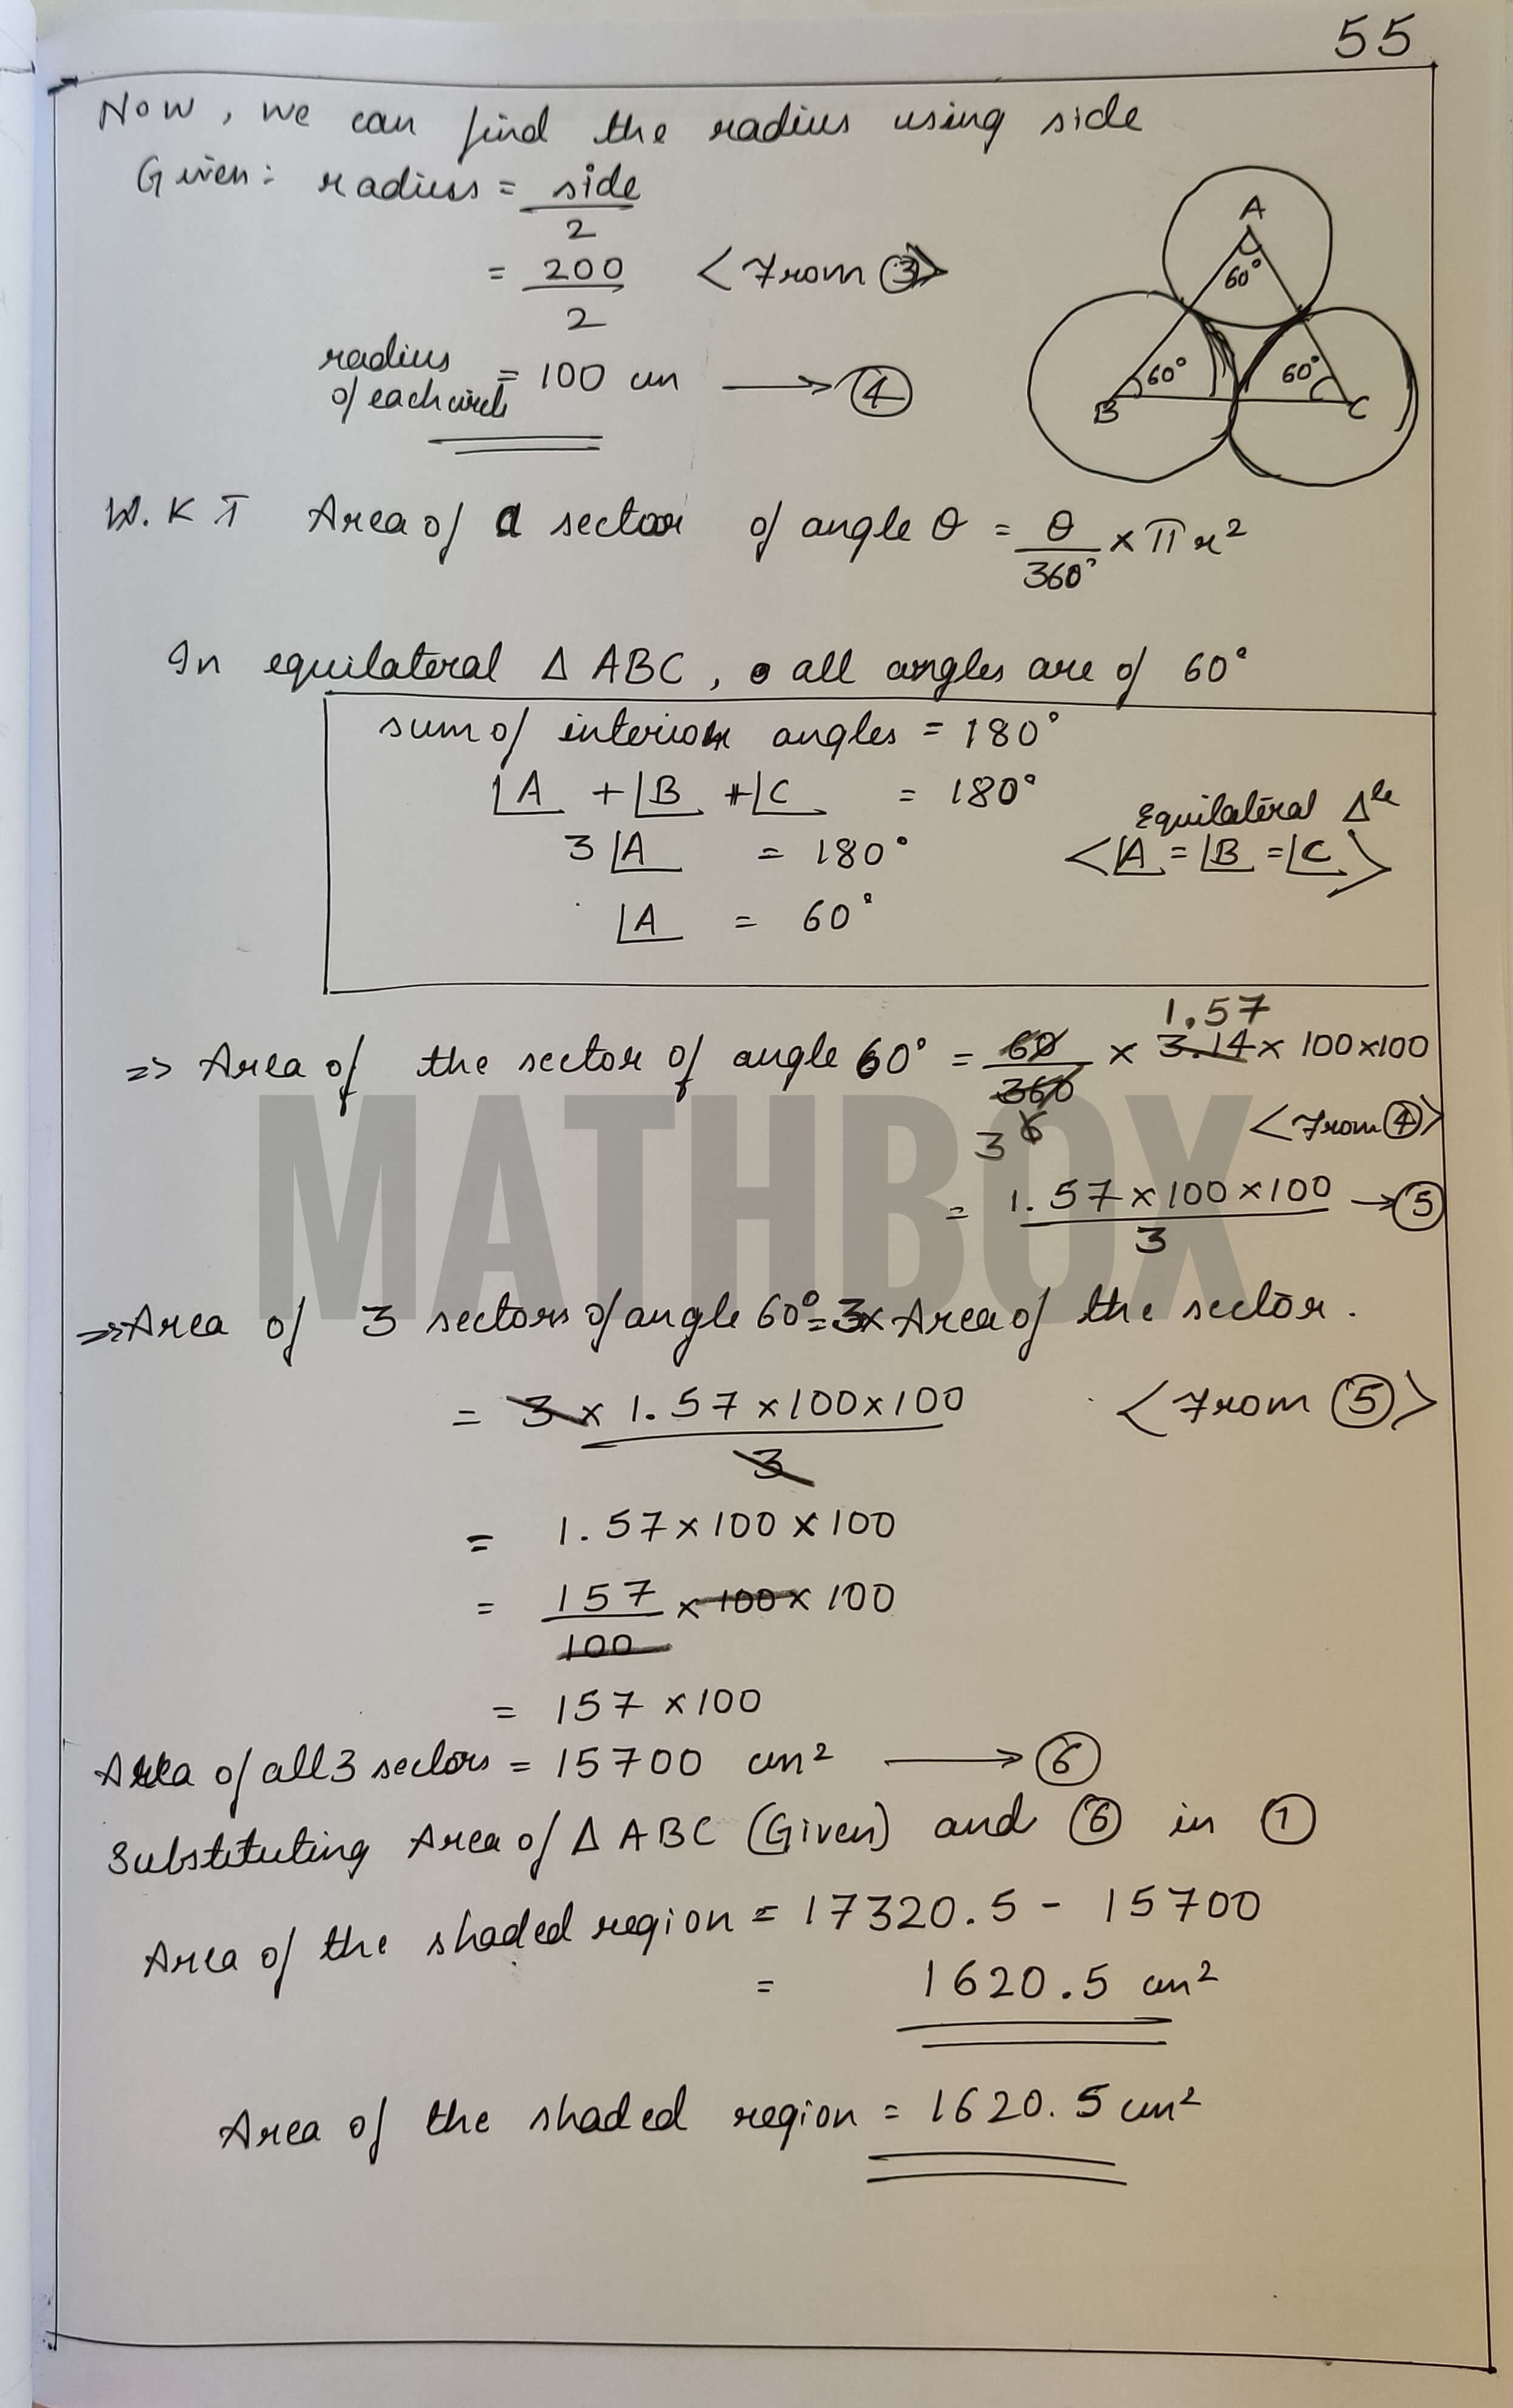 55
Now, we can find the radius using side
Given: radius = side / 2
= 200 / 2 <From ③>
radius of each circle = 100 cm → ④
A
60°
60°
60°
B
C
W.K.T Area of a sector of angle θ = θ/360° × πr²
In equilateral Δ ABC, all angles are of 60°
sum of interior angles = 180°
∠A + ∠B + ∠C = 180°
Equilateral Δle
3∠A = 180° <∠A = ∠B = ∠C>
∠A = 60°
1.57
=> Area of the sector of angle 60° = 60/360 × 3.14 × 100×100
3 6 <From ④>
= 1.57×100×100 / 3 → ⑤
=> Area of 3 sectors of angle 60° = 3× Area of the sector.
= 3 × 1.57×100×100 / 3 <From ⑤>
= 1.57×100×100
= 157/100 × 100 × 100
= 157 ×100
Area of all 3 sectors = 15700 cm² → ⑥
Substituting Area of Δ ABC (Given) and ⑥ in ①
Area of the shaded region = 17320.5 - 15700
= 1620.5 cm²
Area of the shaded region = 1620.5 cm²
MATHBOX